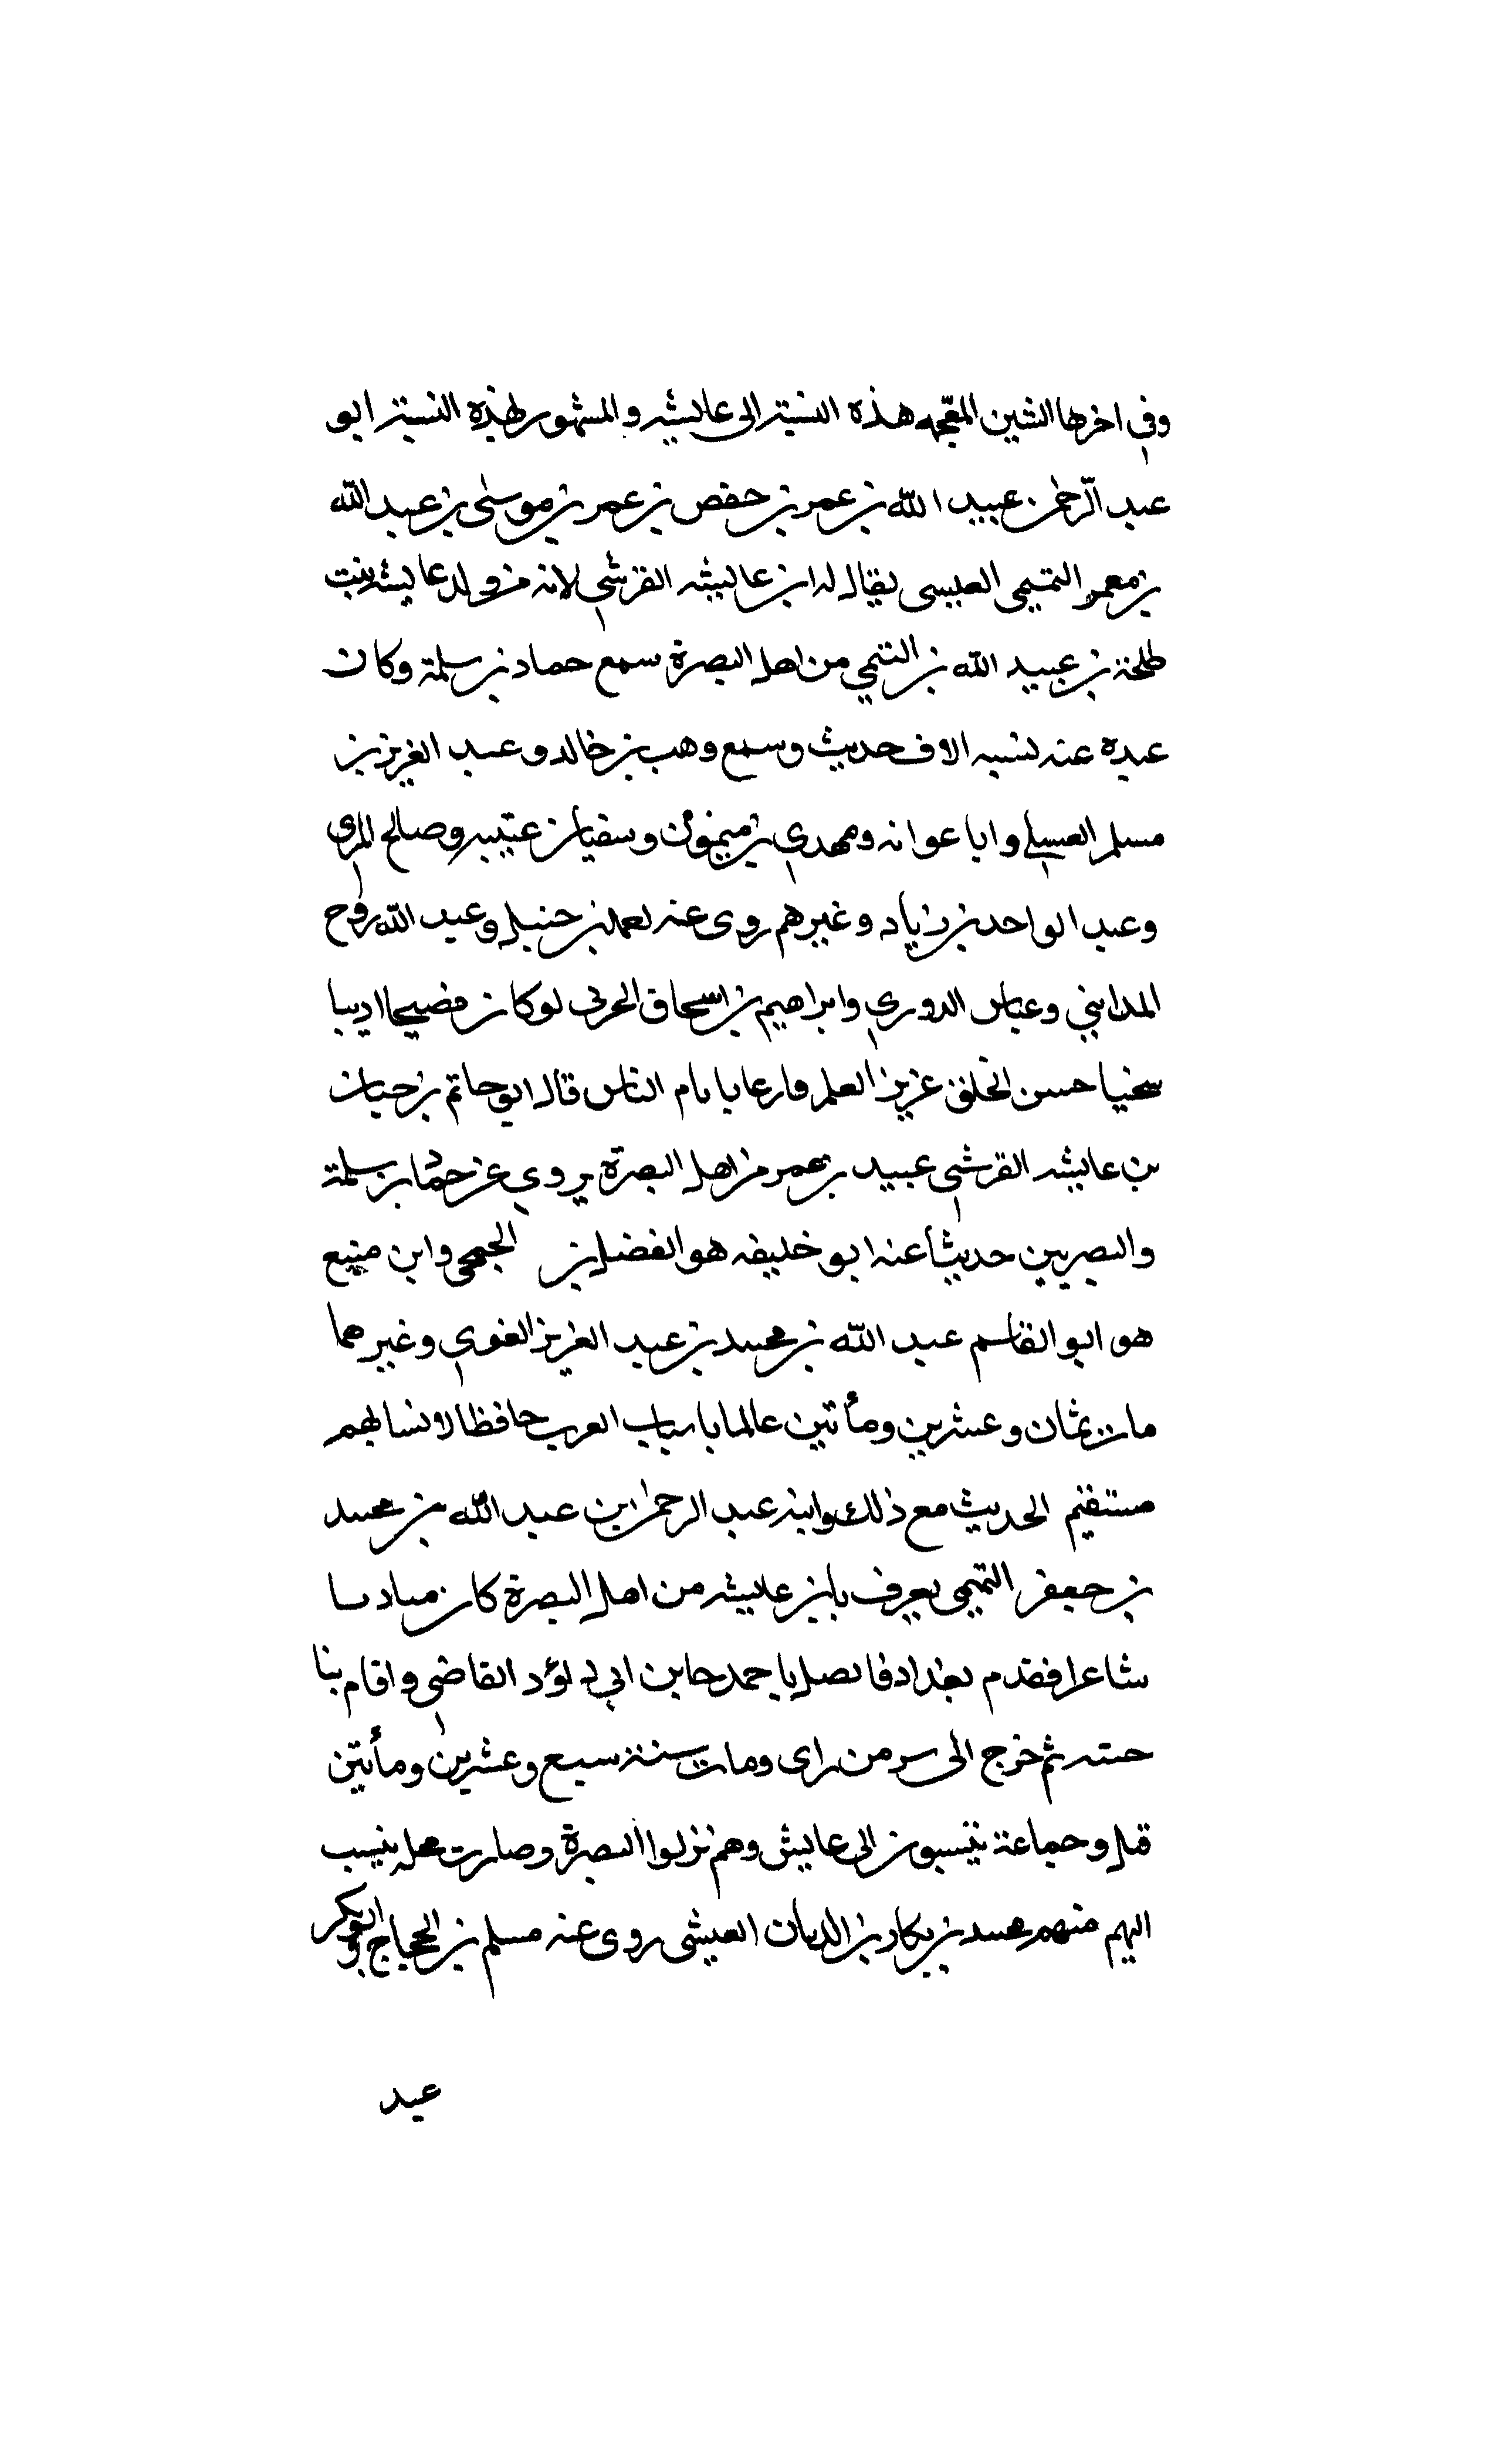 وفي اخرها الشين المعجمه هذه النسبة الى عايشه والمشهور بهذه النسبة ابو
عبد الرحمن عبيد الله بن عمر بن حفص بن عمر بن موسى بن عبيد الله
بن معمر التميمي العيسى يقال له ابن عايشه القرشي لانه من ولد عايشه بنت
طلحة بن عبيد الله بن التيمي من اهل البصرة سمع حماد بن سلمة وكان
عبده عنه تسعه الاف حديث وسمع وهب بن خالد وعبد العزيز بن
مسلم العسلي وابا عوانه ومهدي بن ميمون وسفيان بن عتيبه وصالح المري
وعبد الواحد بن زياد وغيرهم روى عنه احمد بن حنبل وعبد الله روح
المدايني وعباس الدوري وابراهيم بن اسحاق الحربي لوكان فصيحا اديبا
سخيا حسن الخلق عزيز العلم وارعا بايام الناس قال ابو حاتم بن حبان
بن عايشه القرشي عبيد بن عمر من اهل البصرة يروي عن حماد بن سلمة
والبصريين حديثا عنه ابو خليفه هو الفضل بن الجمحي وابن منيع
هو ابو القاسم عبد الله بن محمد بن عبد العزيز البغوي وغيرهما
مات بثمان وعشرين ومأتين عالما باسباب العرب حافظا لانسابهم
مستقيم الحديث مع ذلك وابنه عبد الرحمن ابن عبد الله بن محمد
بن جعفر التميمي يعرف بابن عايشه من اهل البصرة كان متادبا
شاعرا فقدم بغداد فاتصل باحمد ابن ابي لؤد القاضي واقام بنا
حسه ثم خرج الى سر من راى ومات سنة سبع وعشرين ومأتين
قبل وجماعة ينسبون الى عايش وهم نزلوا البصرة وصارت محله ينسب
اليهم منهم محمد بن بكار بن الديان العيشى روى عنه مسلم بن الحجاج وابو بكر
عبد